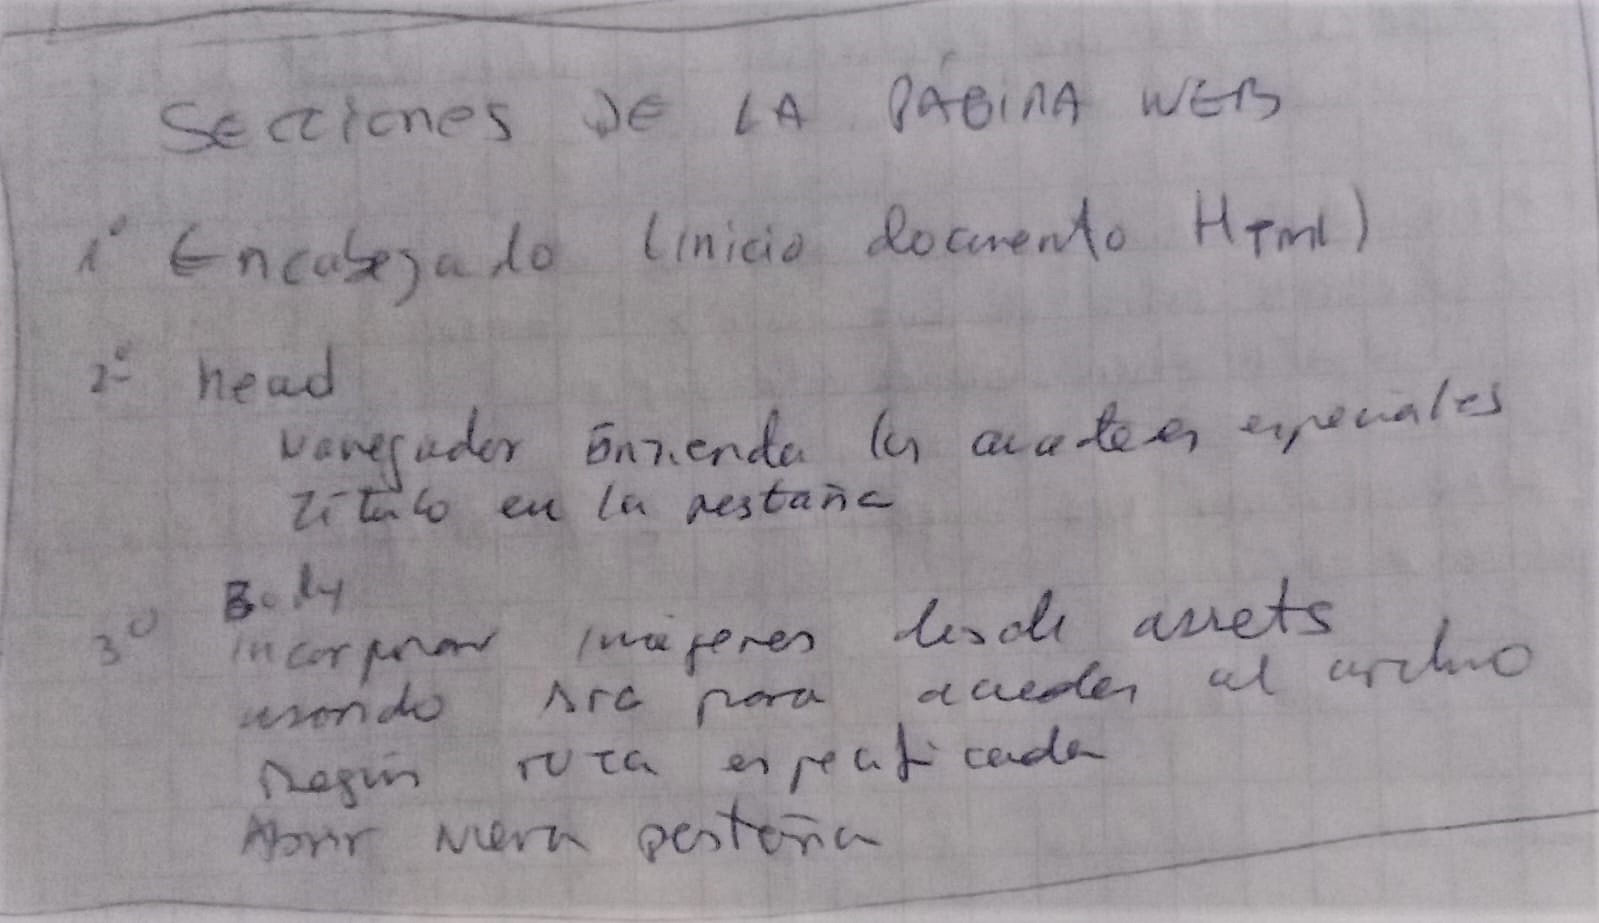 Secciones DE LA PÁGINA WEB
1° Encabezado (inicio documento Html)
2° head
Navegador Entienda los caracteres especiales
título en la pestaña
3° Body
incorporar imágenes desde assets
usando src para acceder al archivo
según ruta especificada
Abrir nueva pestaña